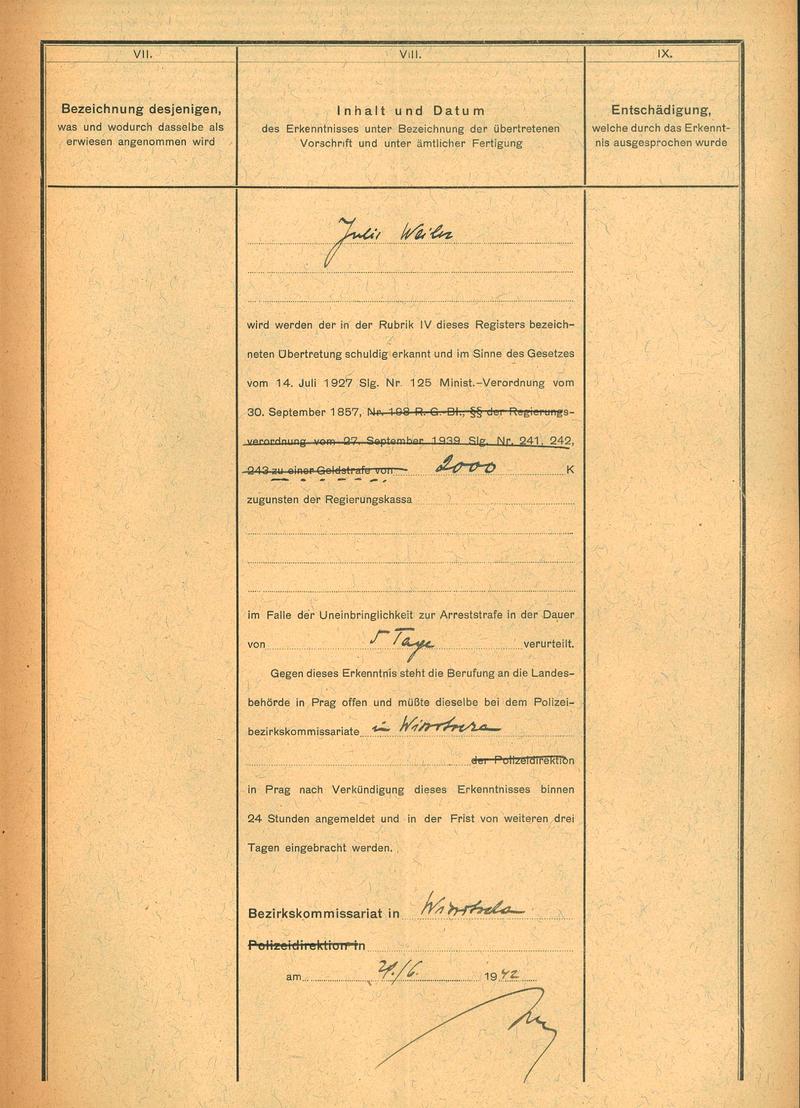 VII.
Bezeichnung desjenigen,
was und wodurch dasselbe als
erwiesen angenommen wird
VIII.
Inhalt und Datum
des Erkenntnisses unter Bezeichnung der übertretenen
Vorschrift und unter ämtlicher Fertigung
IX.
Entschädigung,
welche durch das Erkennt-
nis ausgesprochen wurde
Julie Weiler
wird werden der in der Rubrik IV dieses Registers bezeich-
neten Übertretung schuldig erkannt und im Sinne des Gesetzes
vom 14. Juli 1927 Slg. Nr. 125 Minist.-Verordnung vom
30. September 1857, Nr. 198 R.-G.-Bl., §§ der Regierungs-
verordnung vom 27. September 1939 Slg. Nr. 241, 242,
243 zu einer Geldstrafe von 2000 K
zugunsten der Regierungskassa
im Falle der Uneinbringlichkeit zur Arreststrafe in der Dauer
von 5 Tage verurteilt.
Gegen dieses Erkenntnis steht die Berufung an die Landes-
behörde in Prag offen und müßte dieselbe bei dem Polizei-
bezirkskommissariate in
der Polizeidirektion
in Prag nach Verkündigung dieses Erkenntnisses binnen
24 Stunden angemeldet und in der Frist von weiteren drei
Tagen eingebracht werden.
Bezirkskommissariat in
Polizeidirektion in
am 1942